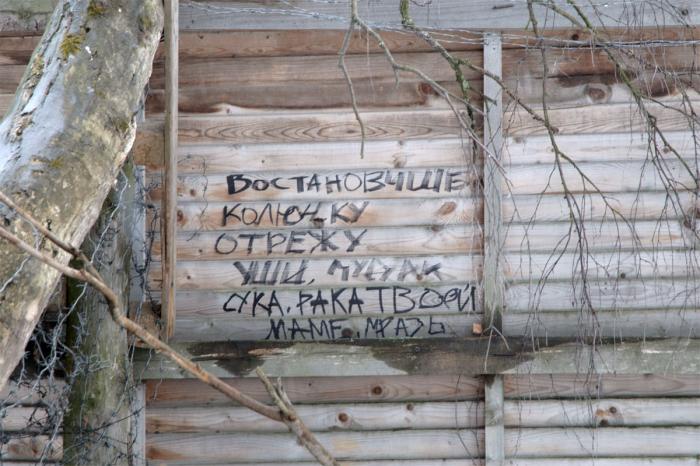 ВОСТАНОВЧШЕ
КОЛЮЧКУ
ОТРЕЖУ
УШИ,
СУКА, РАКА ТВОЕЙ
МАМЕ, МРАЗЬ